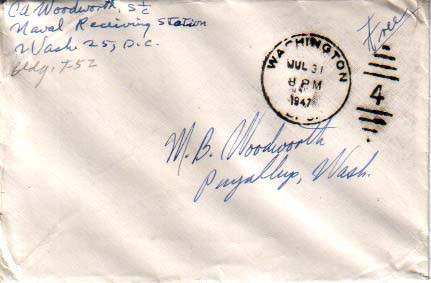 Cd Woodworth, S 1/c
Naval Receiving Station
Wash 25, D.C.
Bldg. T-52
Free
WASHINGTON
JUL 31
8 PM
1947
D. C.
4
M. B. Woodworth
Puyallup, Wash.